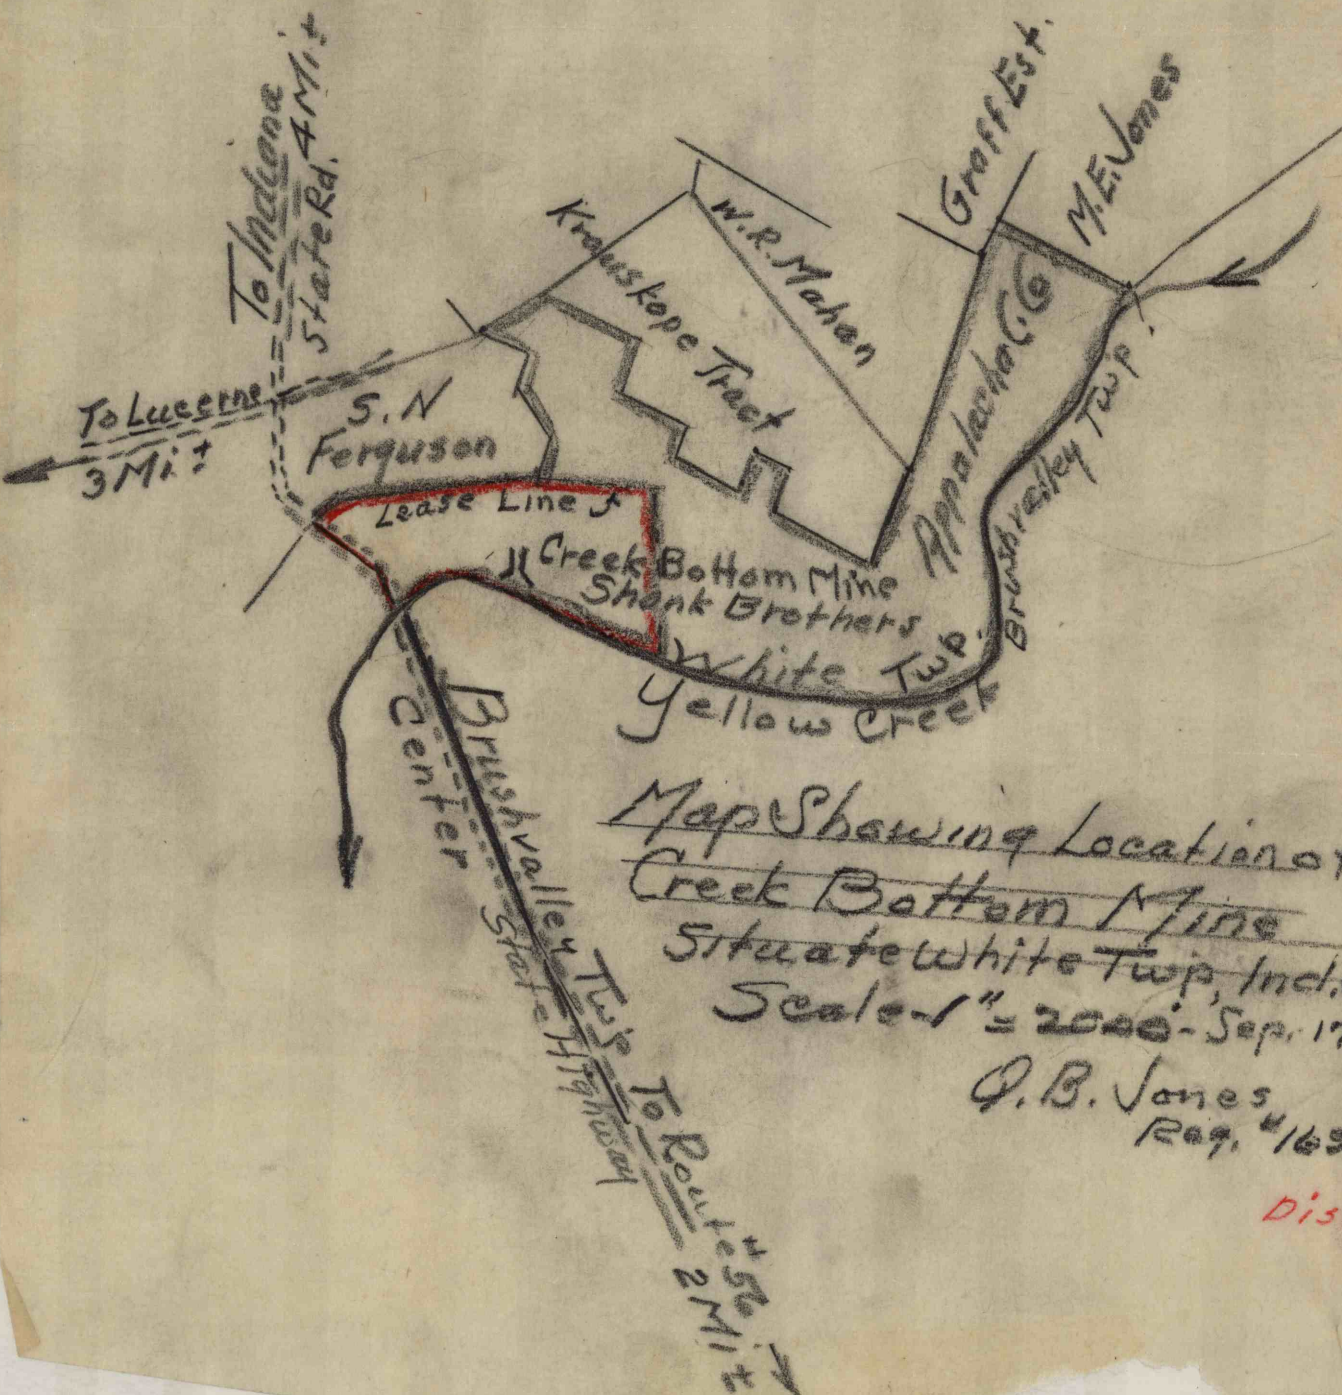 To Indiana
State Rd. 4 Mi ±
To Lucerne
3 Mi. ±
S. N
Ferguson
Krauskope Tract
W. R. Mahan
Graff Est.
M. E. Jones
Brushvalley Twp.
Lease Line
Creek Bottom Mine
Shank Brothers
White Twp.
Yellow Creek
Center
Brushvalley Twp
State Highway
To Route # 56
2 Mi ±
Map Showing Location of
Creek Bottom Mine
Situate White Twp, Ind.
Scale - 1" = 2000' - Sep. 17
O. B. Jones
Reg. #
Dis